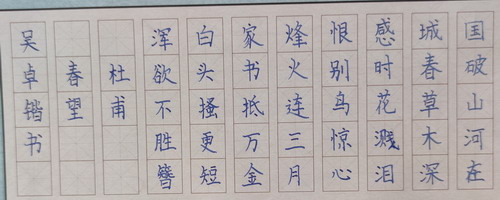 国破山河在
城春草木深
感时花溅泪
恨别鸟惊心
烽火连三月
家书抵万金
白头搔更短
浑欲不胜簪
杜甫
春望
吴卓锴书